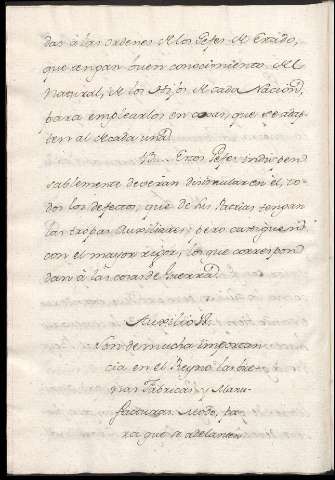 das à las ordenes de los Gefes de Estado,
que tengan buen conocimiento del
Natural, de los Hijos de cada Nacion,
para emplearlos en cosas, que se adap
ten al de cada una.
Estos Gefes indispen
sablemente deveran disimular en el, to-
dos los defectos, que de sus Patrias tengan
las tropas Auxiliares; pero castiguen
con el mayor rigor, los que correspon
dan à las cosas de Guerra.
Auxilio
Son de mucha importan
cia en el Reyno las bue-
nas Fabricas, y Manu-
facturas. Modo, pa-
ra que se adelanten.